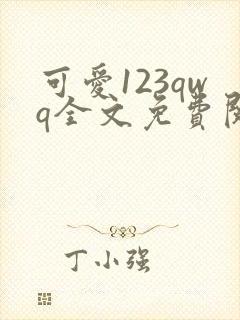 可愛123qw
q全文免費閱
丁小强